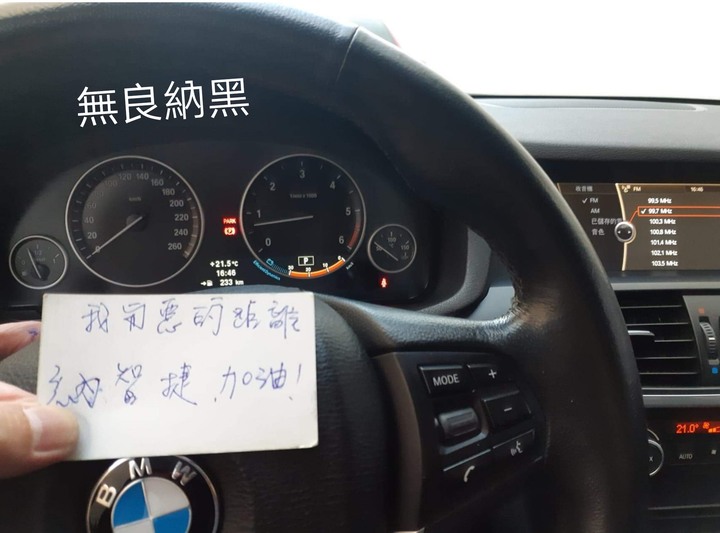 無良納黑
20
40
80
120
140
160
180
200
220
240
260
km/h
0
1
2
3
4
5
6
PARK
P
+21.5°C
16:46
233 km
收音機
FM
16:46
✓ FM
AM
已儲存的電
音色
99.5 MHz
✓ 99.7 MHz
100.3 MHz
100.8 MHz
101.4 MHz
102.1 MHz
103.5 MHz
我與惡的距離
智捷 加油!
MODE
+
−
BMW
21.0°
AUTO